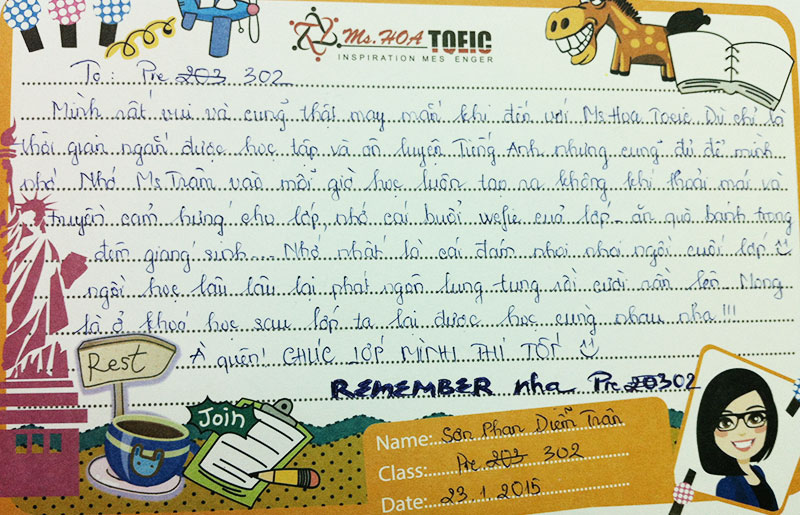 Ms. HOA TOEIC
INSPIRATION MES ENGER
To: Pre 203 302
Mình rất vui và cũng thật may mắn khi đến với Ms Hoa Toeic. Dù chỉ là
thời gian ngắn được học tập và ôn luyện Tiếng Anh nhưng cũng đủ để mình
nhớ. Nhớ Ms Trâm vào mỗi giờ học luôn tạo ra không khí thoải mái và
truyền cảm hứng cho lớp, nhớ cái buổi wefie của lớp.. ăn quà bánh trong
đêm giáng sinh.... Nhớ nhất là cái đám nhoi nhoi ngồi cuối lớp
ngồi học lâu lâu lại phát ngôn lung tung rồi cười rần lên. Mong
là ở khoá học sau lớp ta lại được học cùng nhau nha!!!
À quên! CHÚC LỚP MÌNH THI TỐT
REMEMBER nha Pre 203 302
Rest
Join
Name: Sơn Phan Diễm Trân
Class: Pre 203 302
Date: 23.1.2015